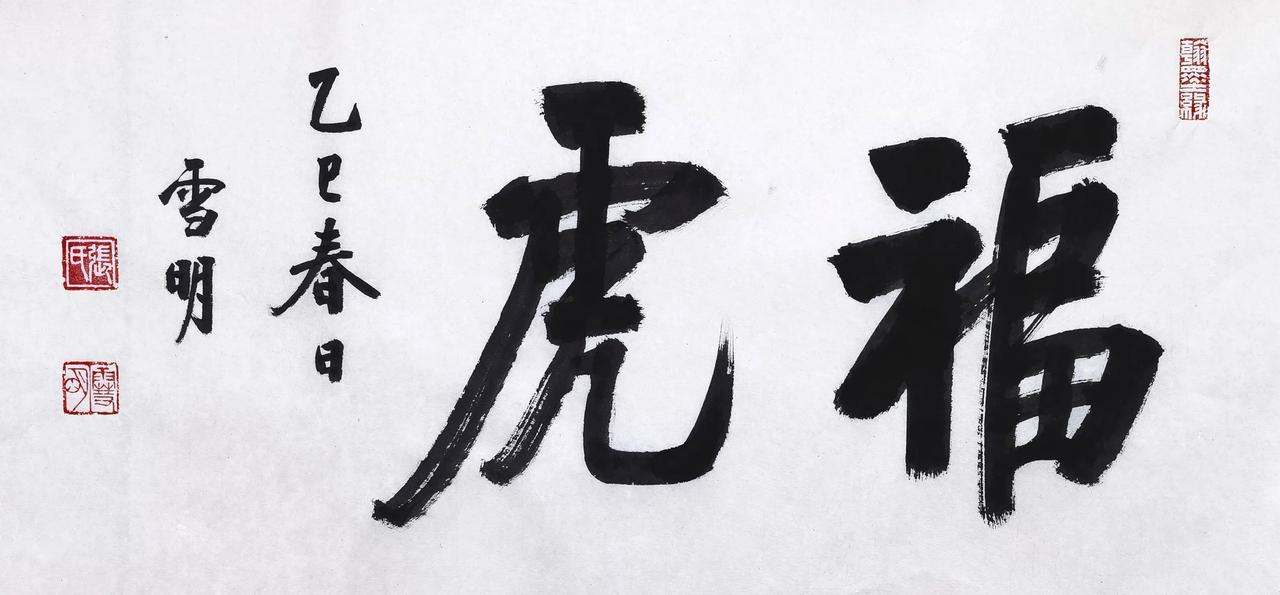 翰墨缘
福虎
乙巳春日
雪明
張氏
雪明